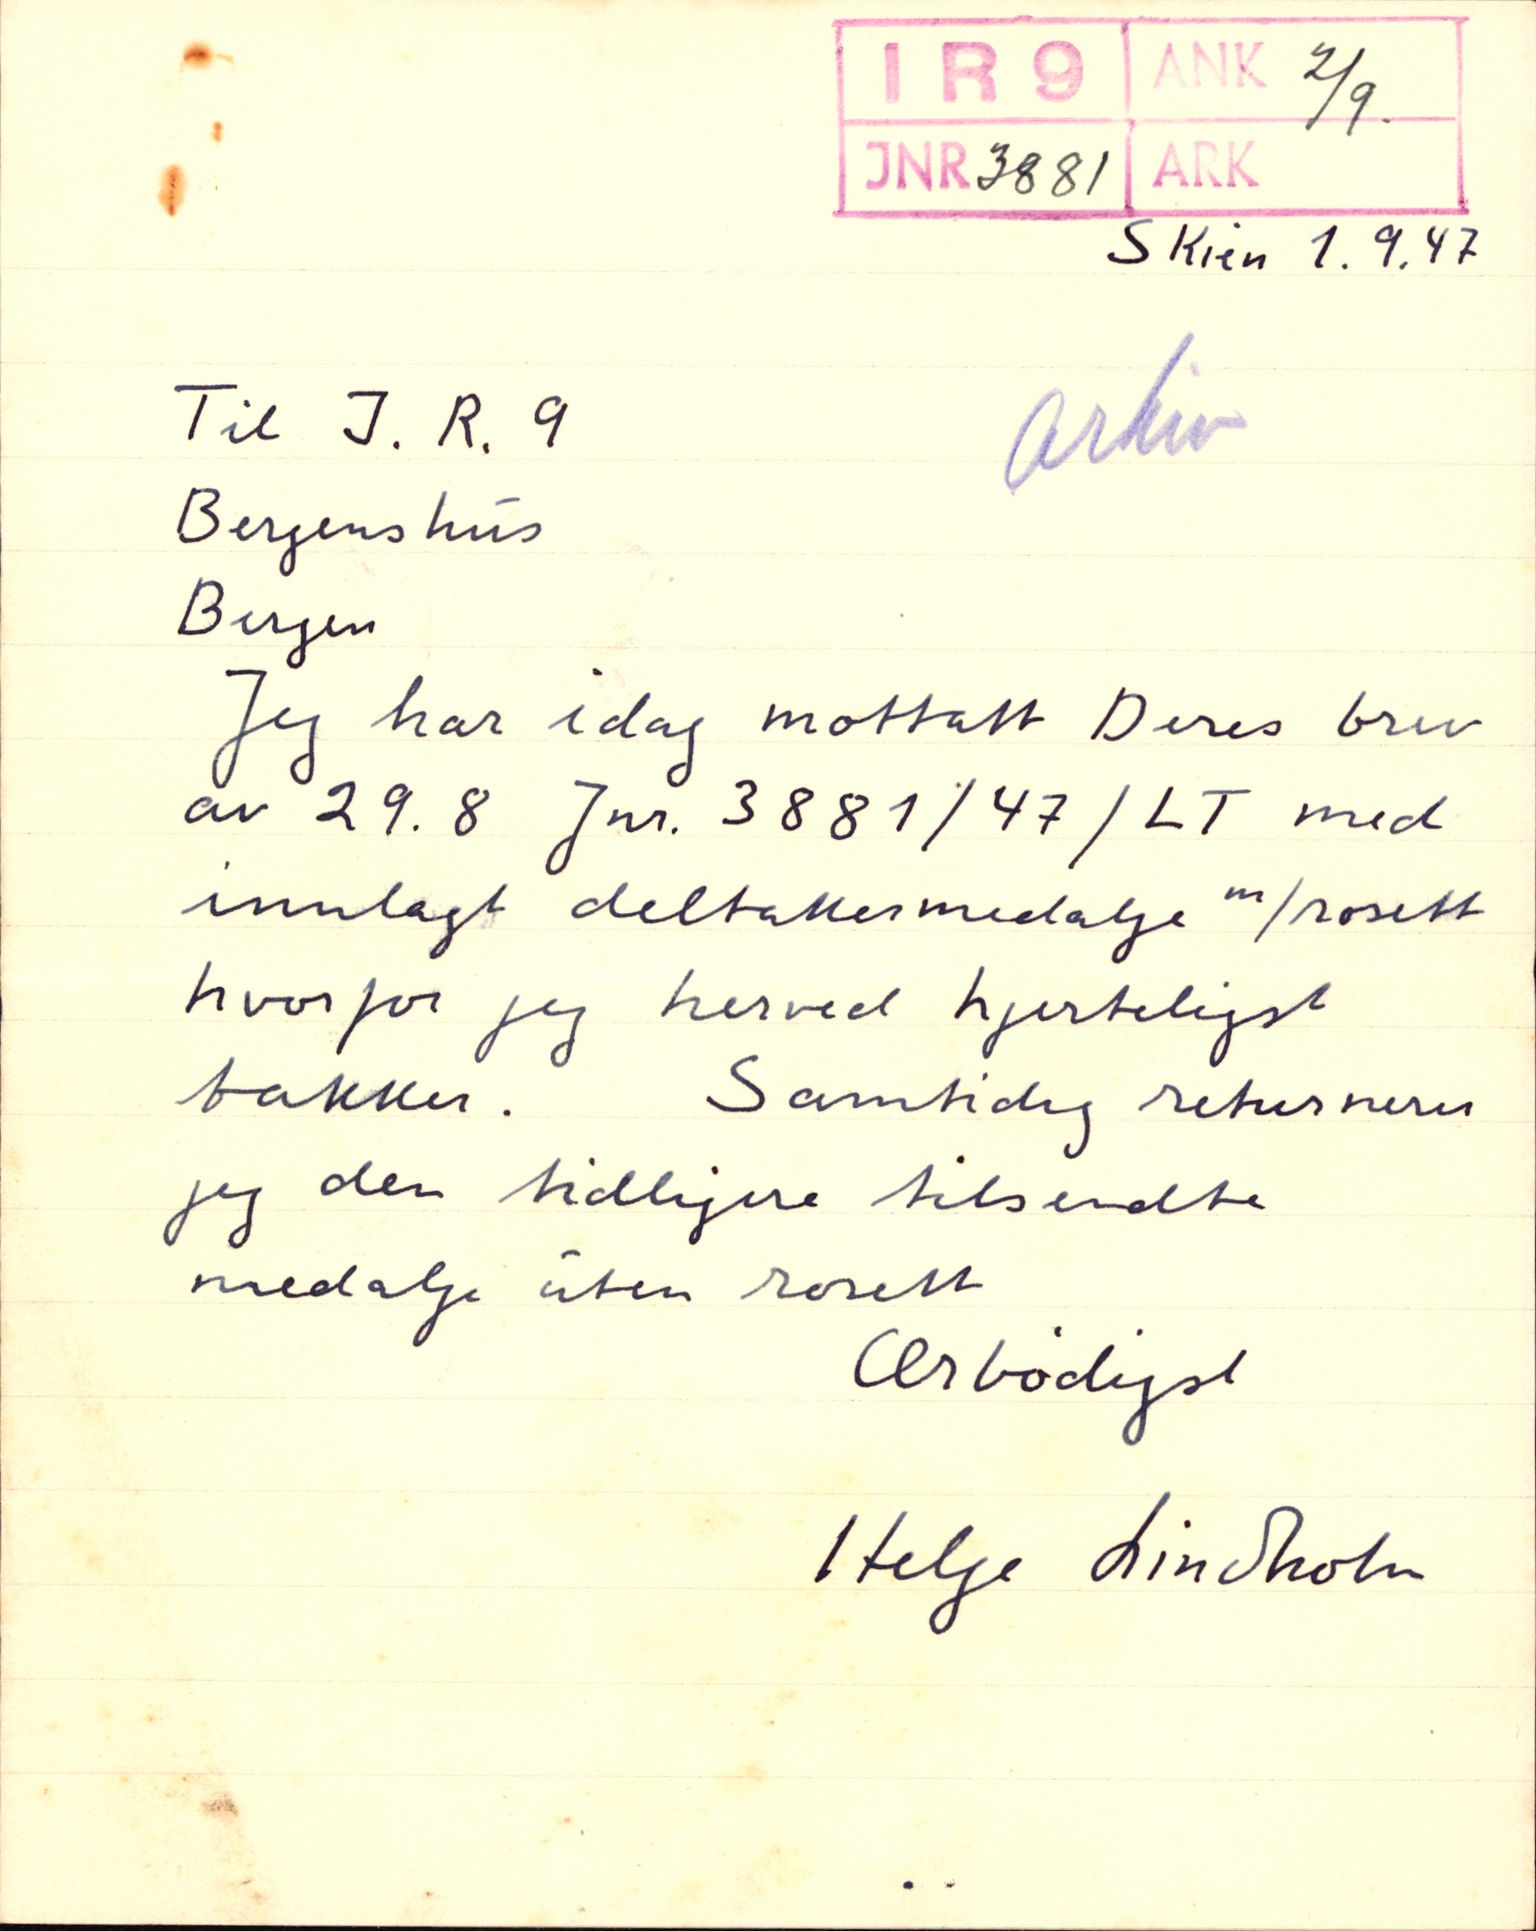 IR9 ANK 2/9.
JNR 3881 ARK
Skien 1.9.47
arkiv
Til J. R. 9
Bergenshus
Bergen
Jeg har idag mottatt Deres brev
av 29.8 Jnr. 3881/47/LT med
innlagt deltakermedalje m/rosett
hvorfor jeg herved hjerteligst
takker. Samtidig returnerer
jeg den tidligere tilsendte
medalje uten rosett
Ærbödigst
Helge Lindholm